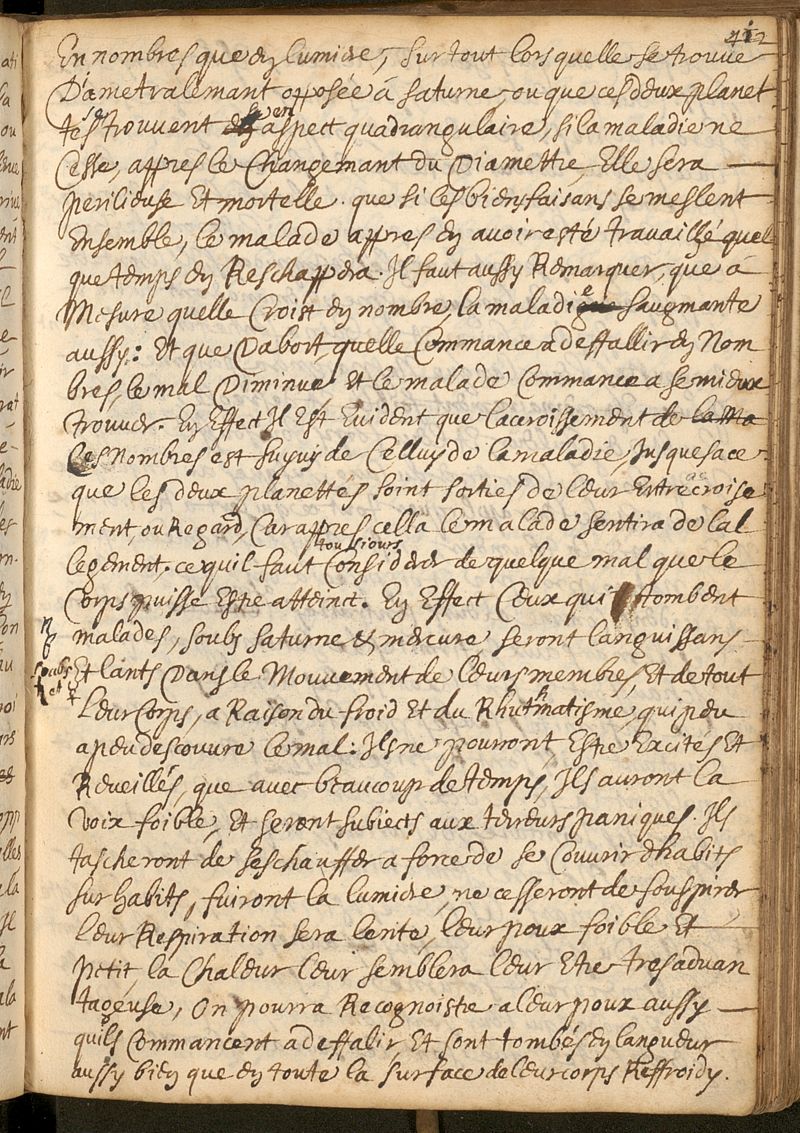 412
En nombres que en lumiere, sur tout lors quelle se trouve
Diametralemant opposée á saturne, ou que ces deux planet
tes se trouvent en aspect quadrangulaire, si la maladie ne
Cesse, appres le Changemant du Diamettre, Elle sera
perilieuse Et mortelle. que si les bienfaisans se meslent
Ensemble, le malade appres en avoir esté travaillé quel
que temps en Reschappera. Il faut aussy Remarquer, que á
Mesure quelle Croist en nombre, la maladie saugmante
aussy: Et que Dabort, quelle Commance a deffallir en Nom
bres, le mal Diminue Et le malade Commance a se mieux
trouver. En Effect Il Est Evident que lacroissement de la Ma
les Nombres est suyvy de Celluy de la maladie, Jusques a ce
que les deux planettes soint sorties de leur Entrecroise
ment, ou Regard, Car appres cella le malade sentira de lal
legement. ce quil faut tousiours Considerer de quelque mal que le
Corps puisse Estre atteinct. En Effect Ceux qui tombent
malades, soubz saturne & mercure, seront languissans
soubs
♄ et ☿
Et lants Dans le Mouvement de leurs membres, Et de tout
Leur Corps, a Raison du froid Et du Rhumatisme, qui peu
a peu descouvre le mal: Ils ne pourront, Estre Excités Et
Reveillés, que avec beaucoup de temps, Ils auront la
voix foible, Et seront subiects aux terreurs paniques. Ils
tascheront de seschauffer a force de se Couvrir dhabits
sur habits, fuiront la lumiere, ne cesseront de souspirer
Leur Respiration sera lente, leur poux foible Et
petit, la Chaleur leur semblera leur Etre tres advan
tageuse, On pourra Recognoistre a leur poux aussy
quils Commancent a deffalir, Et sont tombés en langueur
aussy bien que en toute la surface de leur corps Reffroidy.